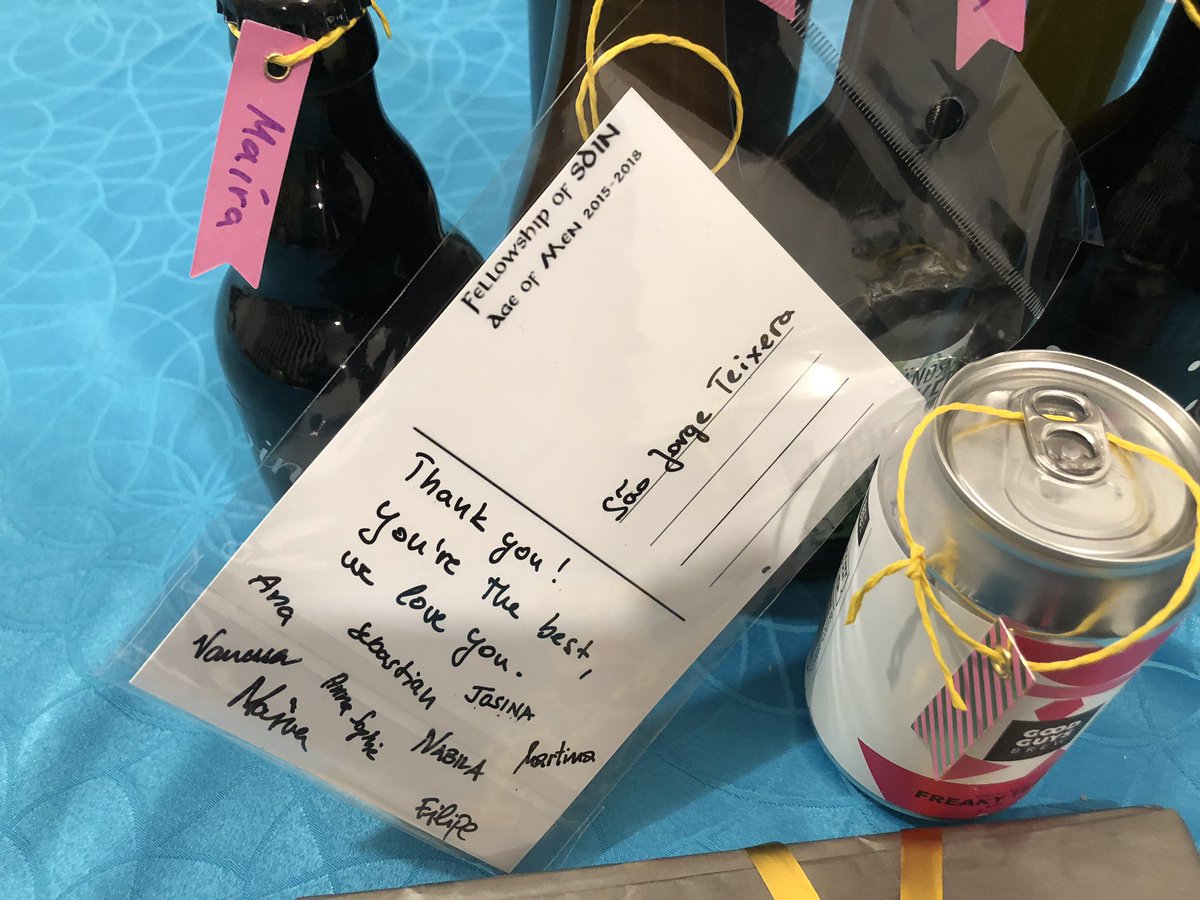 Maíra
Fellowship of SOIN
Age of Men 2015-2018
São Jorge Teixera
Thank you!
You're the best,
we love you.
Ana Sebastian JOSINA
Vanessa Anna Sophie NABILA Martina
Maíra
Filipe
GOOD
GUYS
BREW
FREAKY